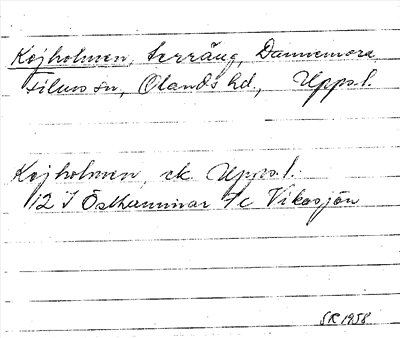 Kojholmen, terräng, Dannemora,
Films sn, Olands hd., Upps.l.
Kojholmen, ek. Upps.l.
12 I Östhammar 7c Vikasjön
SR 1958